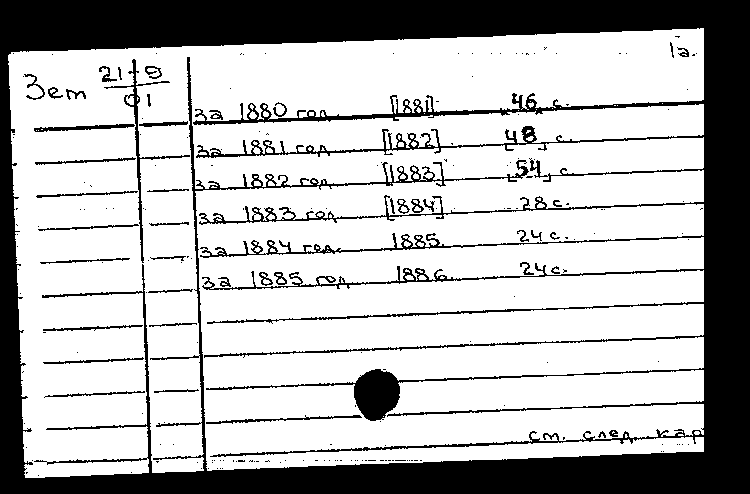 1а.
Зет 21-9
01
за 1880 год [1881] 46 с.
за 1881 год [1882] 48 с.
за 1882 год [1883] 54 с.
за 1883 год [1884] 28 с.
за 1884 год. 1885. 24 с.
за 1885 год 1886. 24 с.
см. след. кар